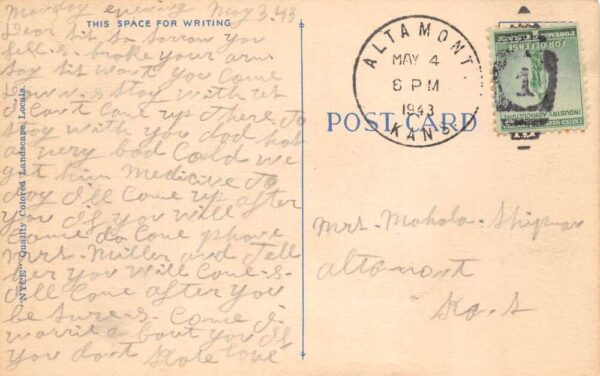 Monday evening May 3. 43
THIS SPACE FOR WRITING
Dear Sit so sorrow you
fell.&. broke your arm
say Sit want you Come
down.&. Stay with us
I Can't Come up there To
stay with you dad has
a very bad Cold we
got him Medicine To
day I'll Come up after
you If you will
Come do Come phone
Mrs. Miller and Tell
her you will Come.&.
I'll Come after you
be sure.&. Come I.
worried about you If
you don't love
"NYCE" Quality Colored Landscape Locals.
POST CARD
ALTAMONT
MAY 4
6 PM
1943
KANS
1
UNITED STATES
INDUSTRY AGRICULTURE
FOR DEFENSE
POSTAGE
Mrs. Mahala. Shipman
altamont
Ka.s